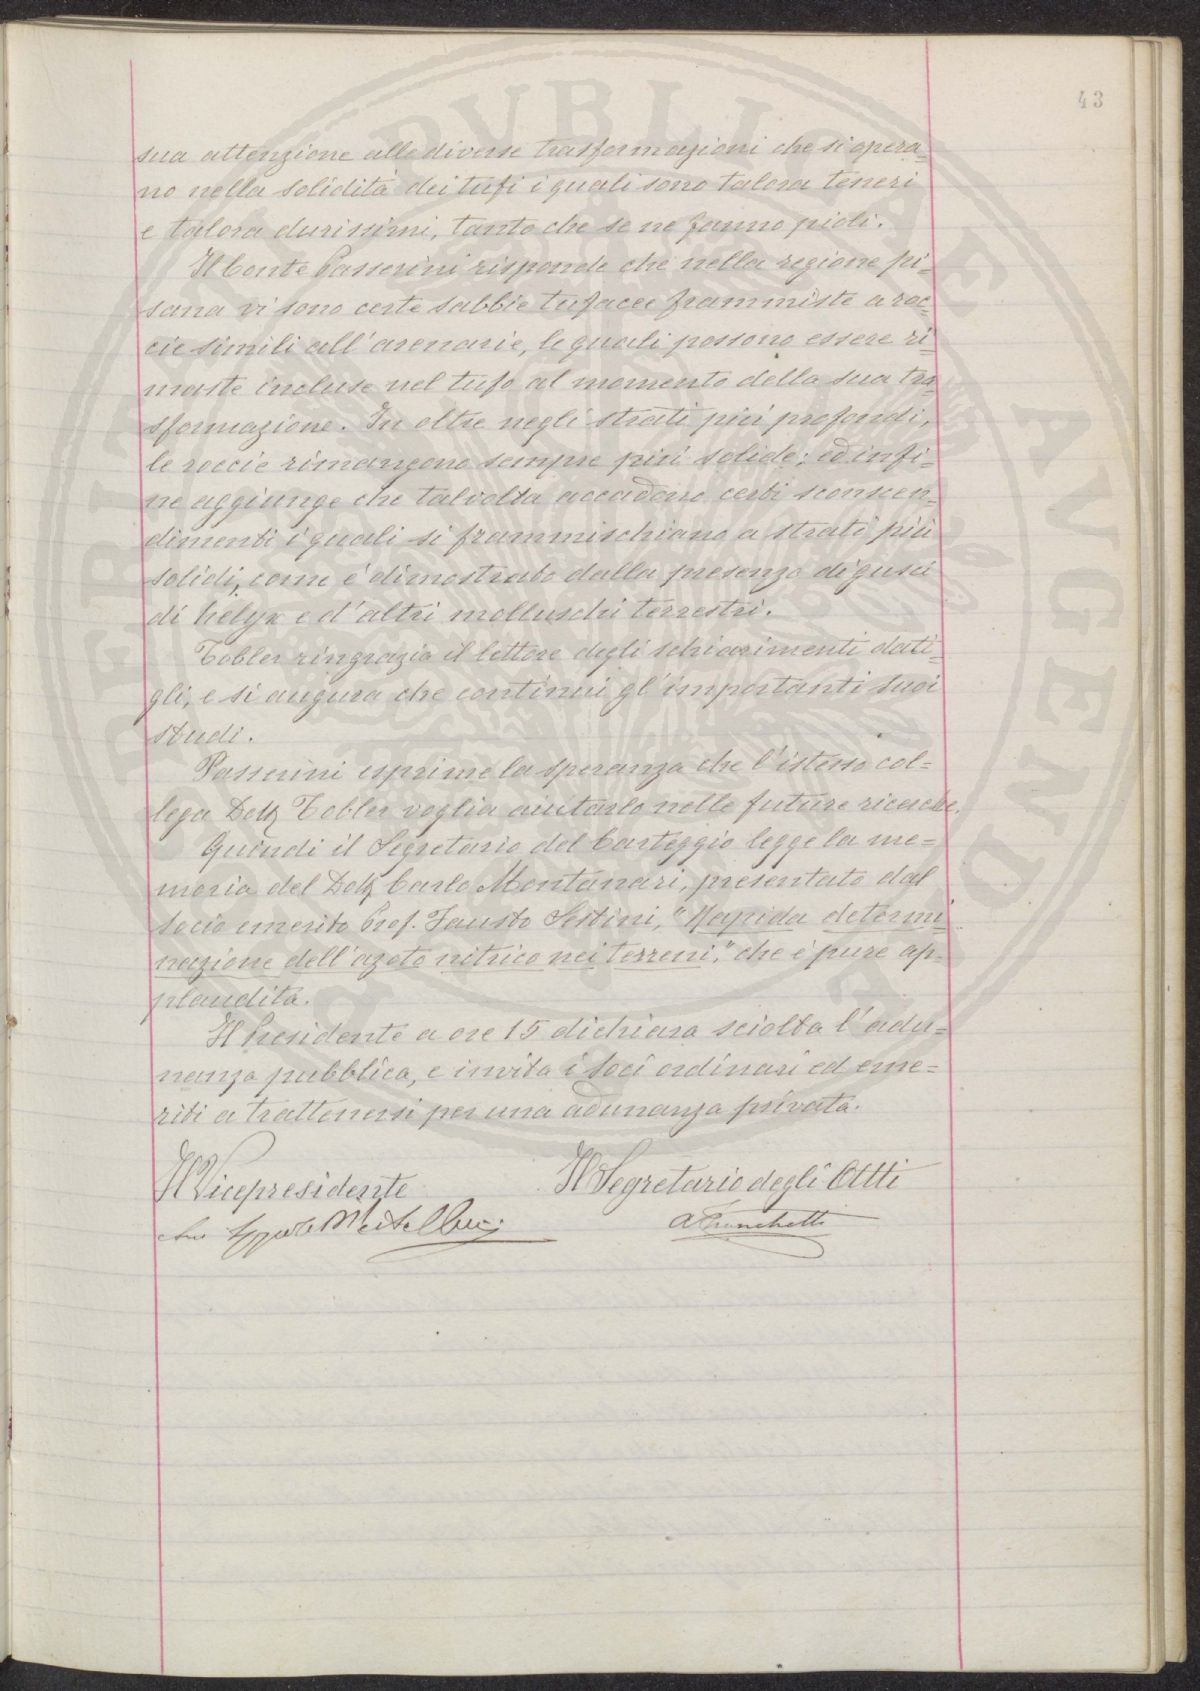 43
sua attenzione alle diverse trasformazioni che si opera=
no nella solidità dei tufi i quali sono talora teneri
e talora durissimi, tanto che se ne fanno pioli.
Il Conte Passerini risponde che nella regione pi=
sana vi sono certe sabbie tufacee frammiste a roc=
cie simili all'arenarie, le quali possono essere ri=
maste incluse nel tufo al momento della sua tra
sformazione. In oltre negli strati più profondi,
le roccie rimangono sempre più solide; ed infi=
ne aggiunge che talvolta accadono certi scoscen=
dimenti i quali si frammischiano a strati più
solidi, come è dimostrato dalla presenza di gusci
di helyx e d'altri molluschi terrestri.
Tobler ringrazia il lettore degli schiarimenti dati=
gli, e si augura che continui gl'importanti suoi
studi.
Passerini esprime la speranza che l'istesso col=
lega Dott Tobler voglia aiutarlo nelle future ricerche.
Quindi il Segretario del Carteggio legge la me=
moria del Dott Carlo Montanari, presentato dal
socio emerito Prof. Fausto Sestini, "Rapida determi
nazione dell'azoto nitrico nei terreni," che è pure ap=
plaudita.
Il Presidente a ore 15 dichiara sciolta l'adu=
nanza pubblica, e invita i soci ordinari ed eme=
riti a trattenersi per una adunanza privata.
Il Vicepresidente
Il Segretario degli Atti
A Franchetti